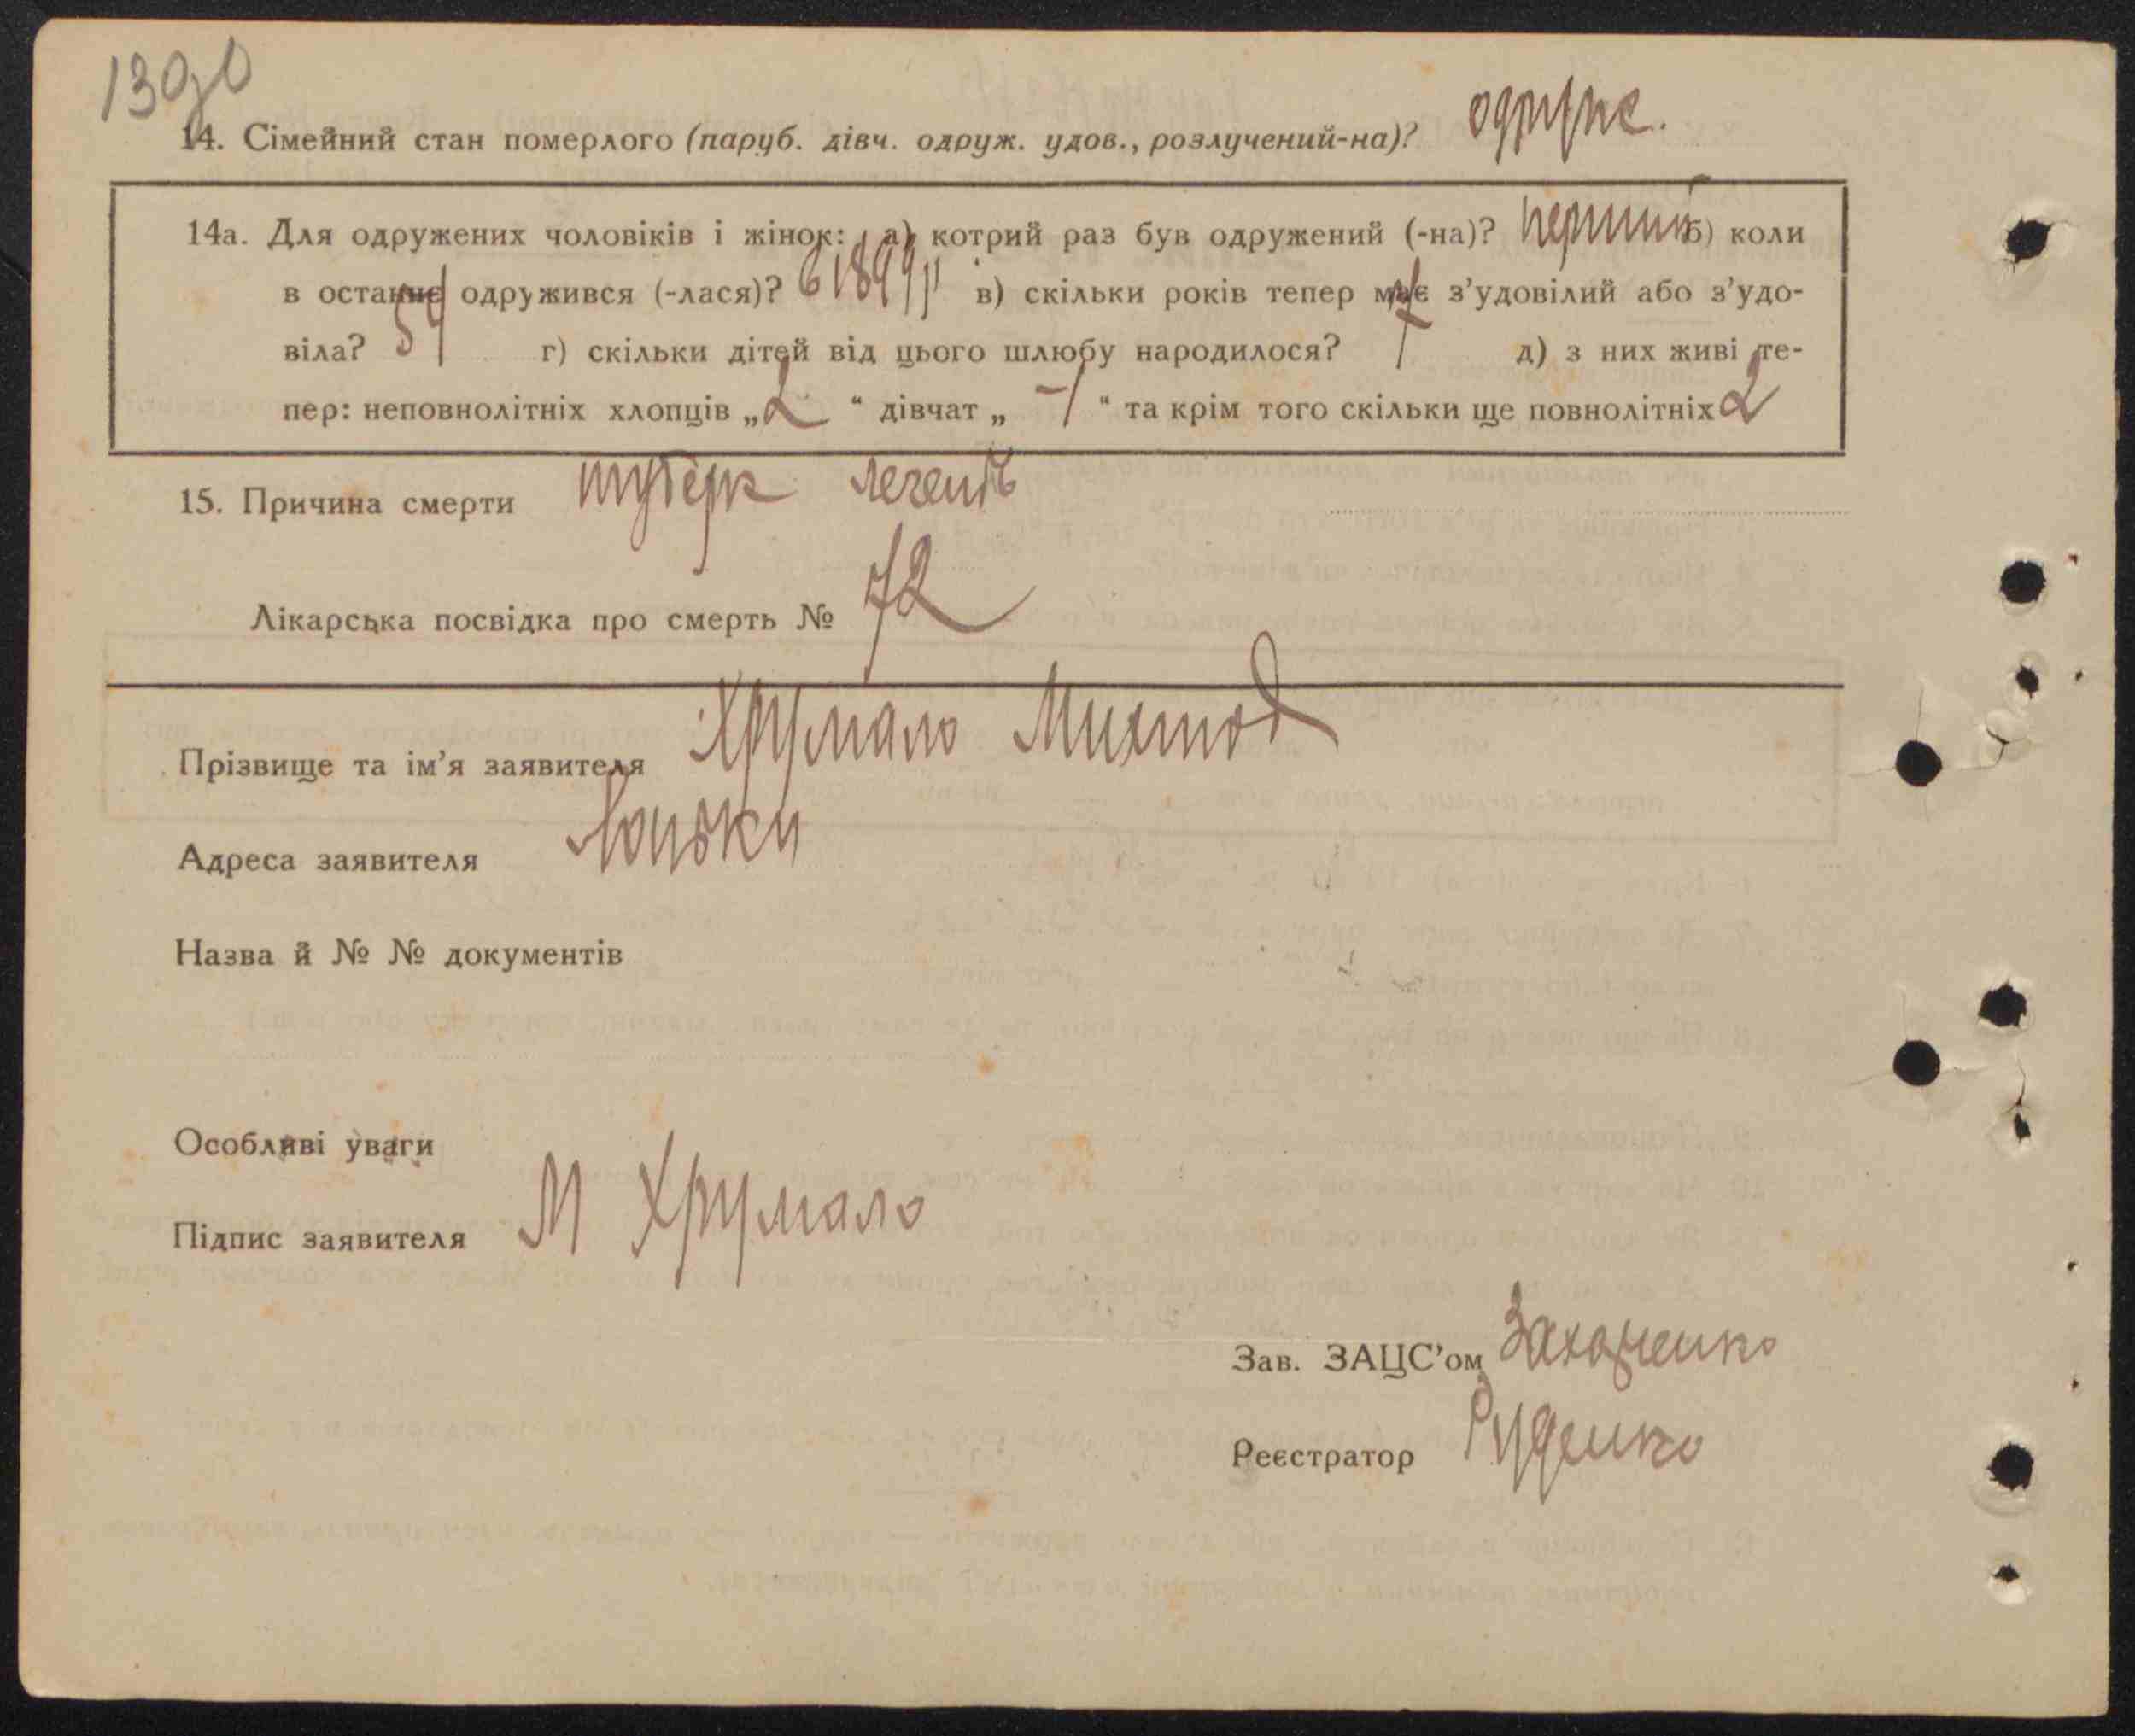 14. Сімейний стан померлого (паруб. дівч. одруж. удов., розлучений-на)? одруже.
14а. Для одружених чоловіків і жінок: а) котрий раз був одружений (-на)? перший б) коли
в останнє одружився (-лася)? в 1899 р в) скільки років тепер має з'удовілий або з'удо-
віла? 54 г) скільки дітей від цього шлюбу народилося? 7 д) з них живі те-
пер: неповнолітніх хлопців „2“ дівчат „1“ та крім того скільки ще повнолітніх 2
15. Причина смерти туберк легенів
Лікарська посвідка про смерть № 72
Прізвище та ім'я заявителя Хрумало
Адреса заявителя
Назва й № № документів
Особливі уваги
Підпис заявителя М Хрумало
Зав. ЗАЦС'ом Захарченко
Реєстратор Руденко